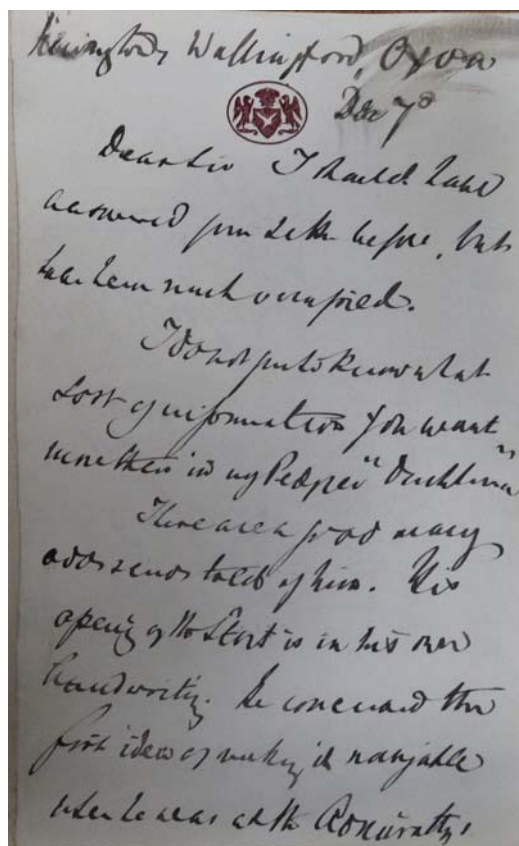 Wallingford, Oxon
Dec 7th
Dear Sir I should have
answered your letter before, but
have been much occupied.
I do not quite know what
sort of information you want
more than in my
There are a good many
told of him. His
opening of the Stort is in his own
handwriting. He conceived the
first idea of making it navigable
when he was at the Admiralty,